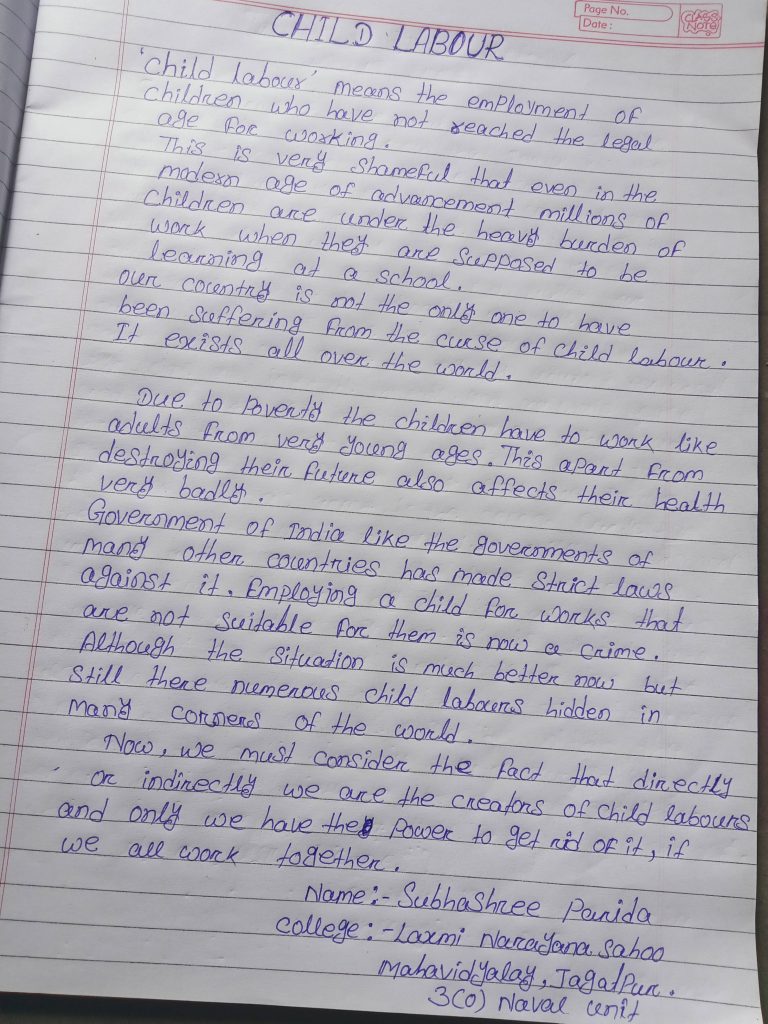 Page No.
Date:
CLASS NOTE
CHILD LABOUR
'Child labour' means the employment of
children who have not reached the legal
age for working.
This is very shameful that even in the
modern age of advancement millions of
children are under the heavy burden of
work when they are supposed to be
learning at a school.
our country is not the only one to have
been suffering from the curse of child labour.
It exists all over the world.
Due to Poverty the children have to work like
adults from very young ages. This apart from
destroying their future also affects their health
very badly.
Government of India like the governments of
many other countries has made strict laws
against it. Employing a child for works that
are not suitable for them is now a crime.
Although the situation is much better now but
still there numerous child labours hidden in
many corners of the world.
Now, we must consider the fact that directly
or indirectly we are the creators of child labours
and only we have the Power to get rid of it, if
we all work together.
Name:- Subhashree Parida
College:- Laxmi Narayana Sahoo
Mahavidyalay, Jagatpur.
3(O) Naval unit